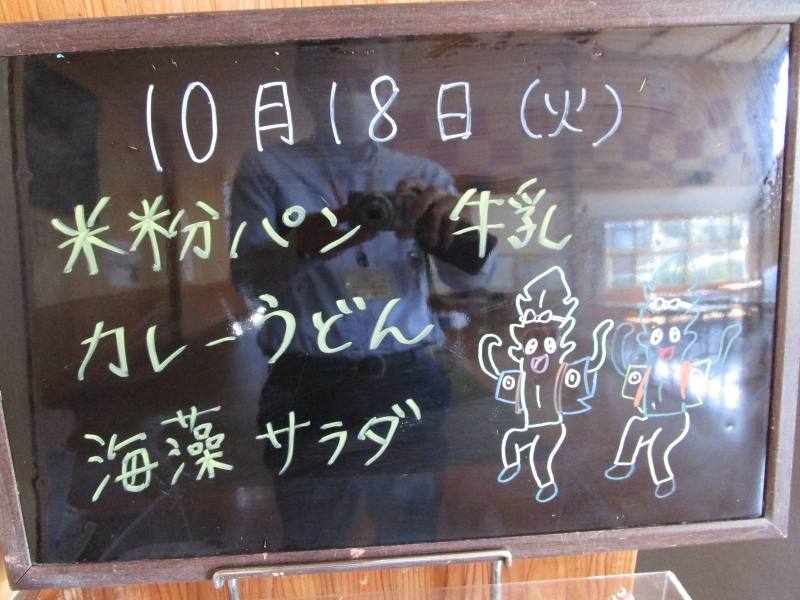 10月18日(火)
米粉パン 牛乳
カレーうどん
海藻サラダ